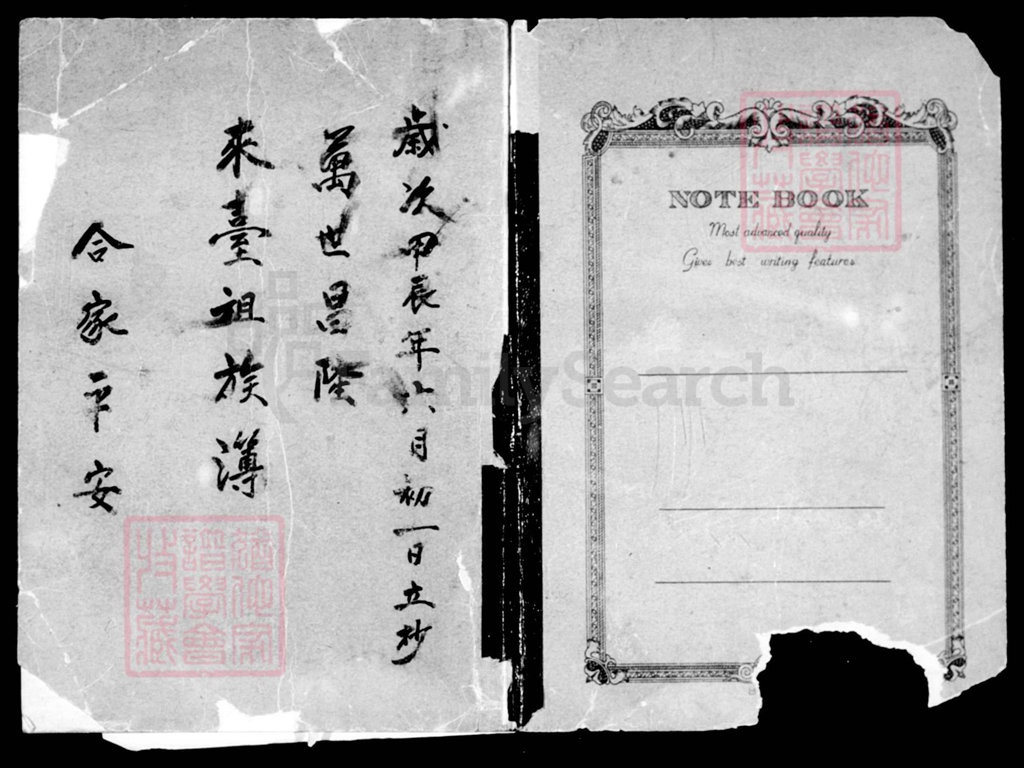 歲次甲辰年六月初一日立抄
萬世昌陞
來臺祖族簿
合家平安
NOTE BOOK
Most advanced quality
Gives best writing features
FamilySearch